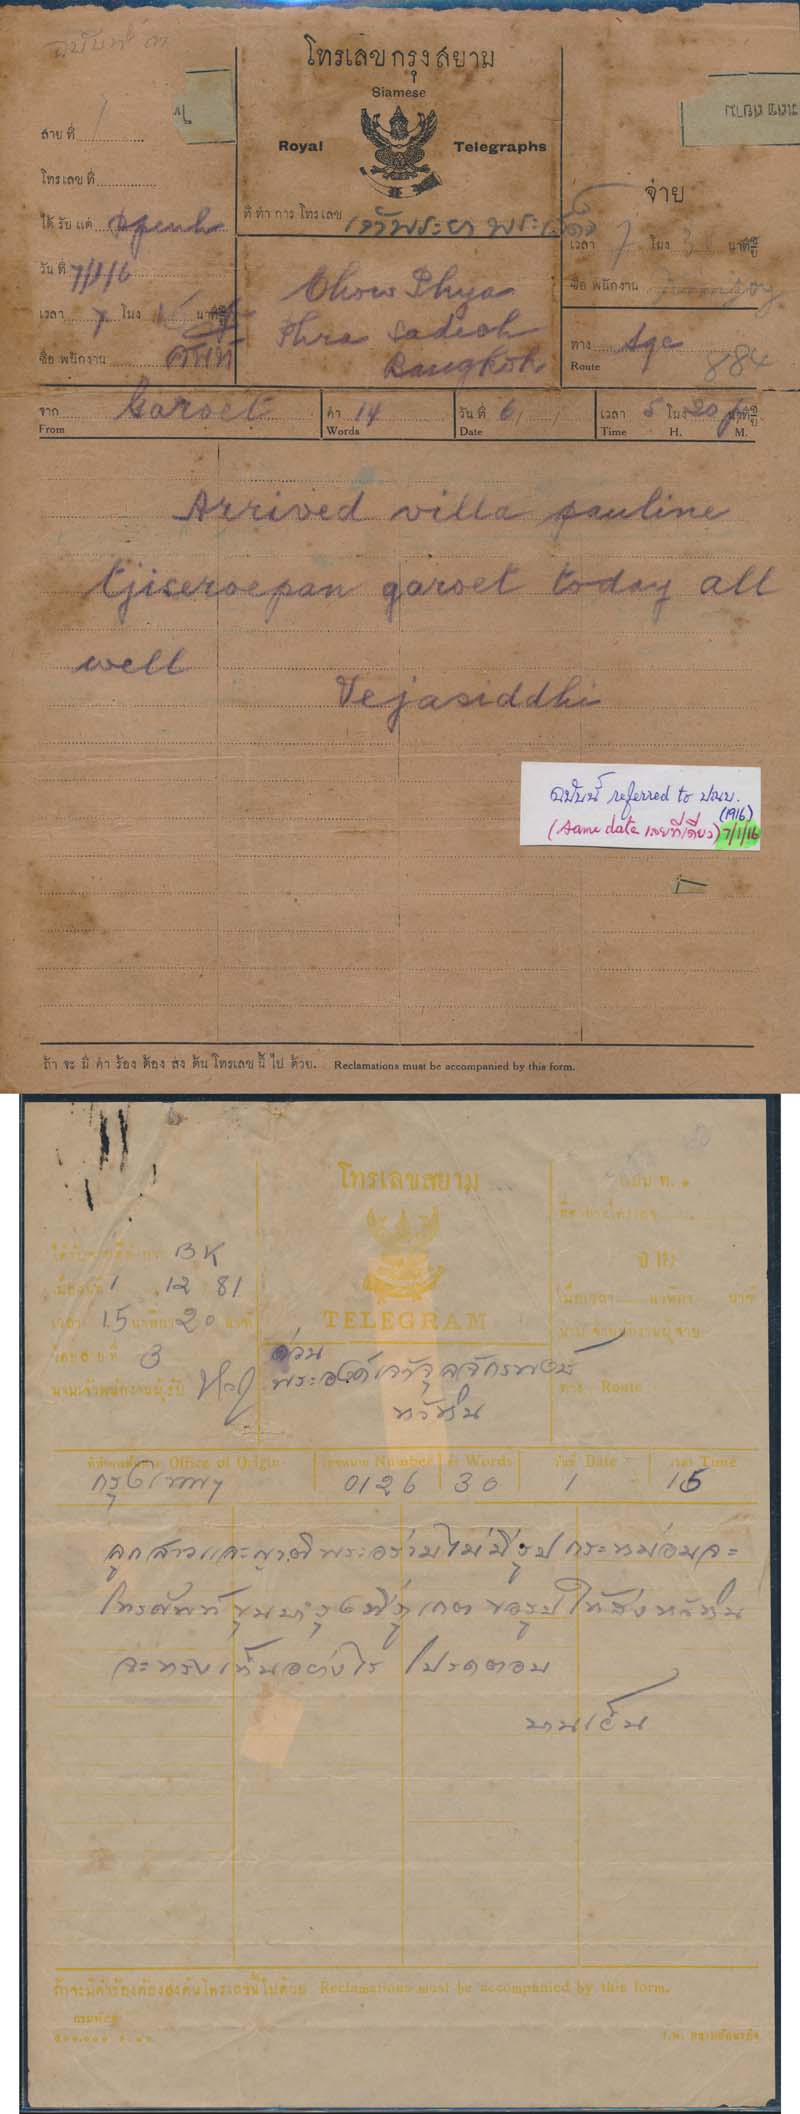 ฉบับที่ ๓
โทรเลขกรุงสยาม
Siamese
Royal Telegraphs
สายที่
โทรเลขที่
ได้รับแต่ Spenh
วันที่ 7/1/6
เวลา 7 โมง นาทีผู้
ชื่อพนักงาน
ที่ทำการโทรเลข เจ้าพระยา พระเสด็จ
Chow Phya
Phra Sadech
Bangkok
จ่าย
เวลา 7 โมง นาทีผู้
ชื่อพนักงาน
ทาง Sgc
Route 884
จาก Garoet
From
คำ 14
Words
วันที่ 6
Date
เวลา 5 โมง 20 นาทีผู้
Time H. M.
Arrived villa pauline
tjiseroepan garoet today all
well
Vejasiddhi
ฉบับนี้ referred to
(1916)
(same date เลยทีเดียว) 7/1/16
ถ้าจะมีคำร้องต้องส่งต้นโทรเลขนี้ไปด้วย. Reclamations must be accompanied by this form.
โทรเลขสยาม
TELEGRAM
BK
1 12 81
เวลา 15 นาฬิกา 20 นาที
3
ด่วน
พระองค์เจ้าจุลจักรพงษ์
หัวหิน
จ่าย
ทาง Route
Office of Origin
กรุงเทพฯ
Number
0126
คำ Words
30
วันที่ Date
1
เวลา Time
15
ลูกสาวและญาติพระอร่ามไม่มีรูป กระหม่อมจะ
โทรศัพท์ขุนบำรุงที่ภูเกต ขอรูปให้ส่งหัวหิน
จะทรงเห็นอย่างไร โปรดตอบ
ถ้าจะมีคำร้องต้องส่งต้นโทรเลขนี้ไปด้วย Reclamations must be accompanied by this form.